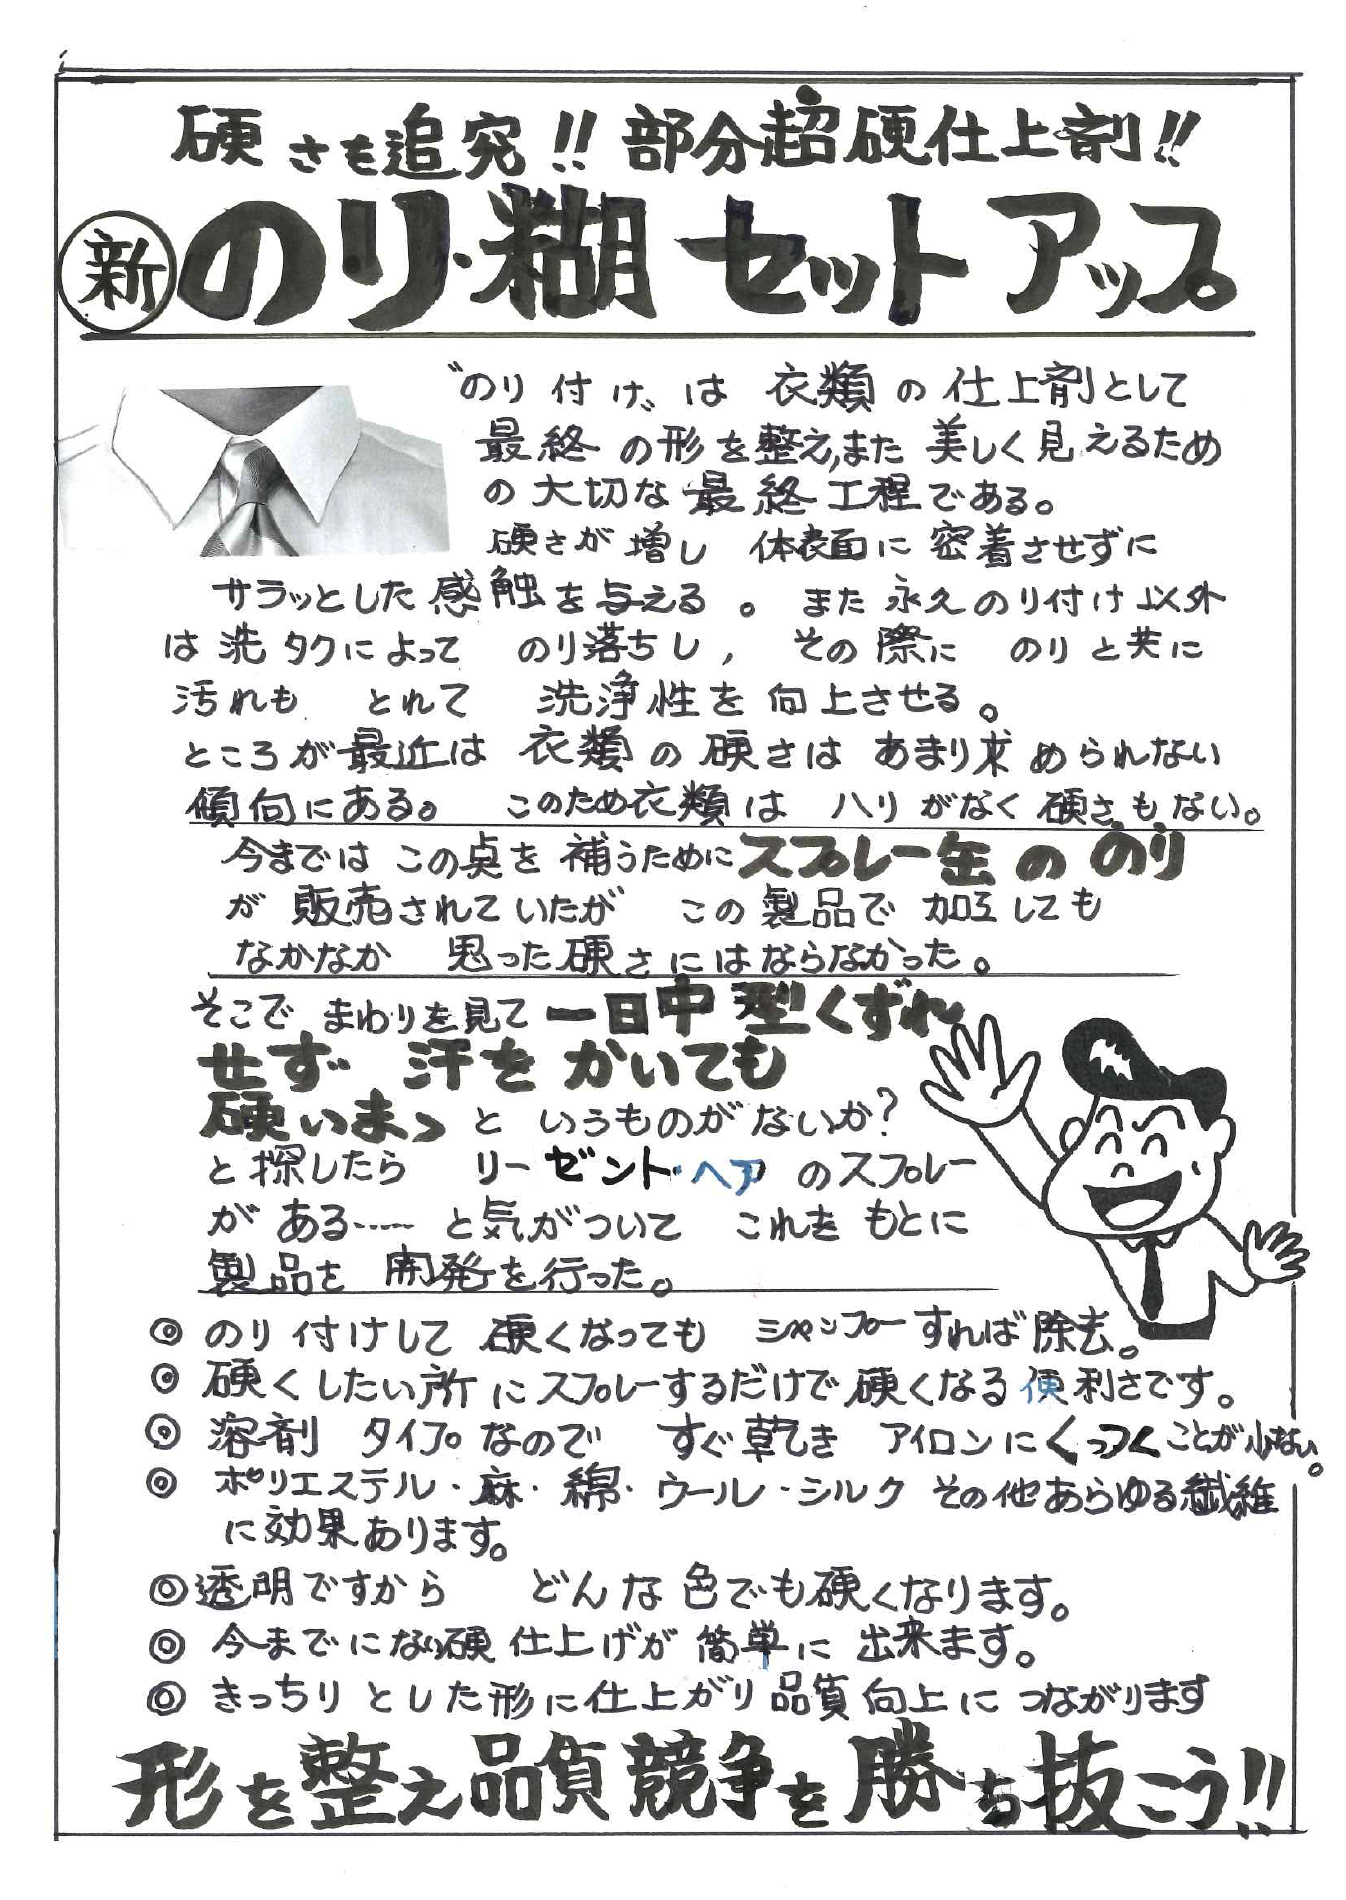 硬さも追究!! 部分超硬仕上剤!!
新 のり・糊 セットアップ
〝のり付け〟は 衣類の仕上剤として
最終の形を整え,また 美しく見えるため
の大切な最終工程である。
硬さが増し 体表面に密着させずに
サラッとした感触を与える。 また永久のり付け以外
は洗タクによって のり落ちし, その際に のりと共に
汚れも とれて 洗浄性を向上させる。
ところが最近は 衣類の硬さは あまり求められない
傾向にある。 このため衣類は ハリがなく硬さもない。
今まではこの点を補うためにスプレー缶ののり
が販売されていたが この製品で加工しても
なかなか 思った硬さにはならなかった。
そこで まわりを見て 一日中型くずれ
せず 汗をかいても
硬いまゝ と いうものがないか?
と探したら リーゼント・ヘアのスプレー
がある…… と気がついて これをもとに
製品を開発を行った。
◎ のり付けして 硬くなっても シャンプーすれば除去。
◎ 硬くしたい所にスプレーするだけで硬くなる便利さです。
◎ 溶剤タイプなので すぐ乾き アイロンにくっつくことが少ない。
◎ ポリエステル・麻・綿・ウール・シルク その他あらゆる繊維
に効果あります。
◎ 透明ですから どんな色でも硬くなります。
◎ 今までにない硬仕上げが簡単に出来ます。
◎ きっちりとした形に仕上がり品質向上につながります
形を整え品質競争を勝ち抜こう!!